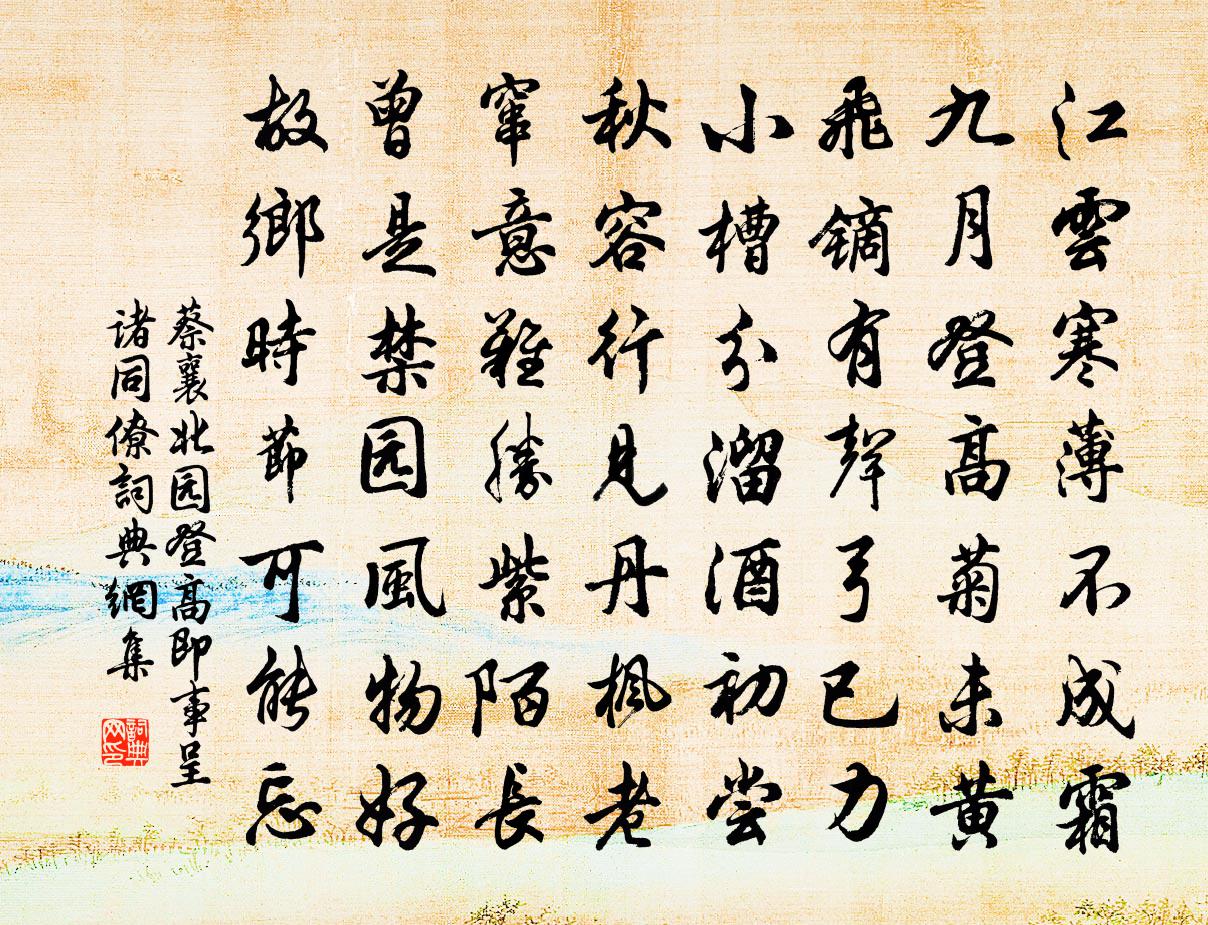 江雲寒薄不成霜
九月登高菊未黄
飛鏑有聲弓已力
小槽分溜酒初尝
秋容行見丹楓老
窜意難勝紫陌長
曾是禁园風物好
故鄉時節可能忘
蔡襄北园登高即事呈
諸同僚詞典網集
詞典
网印